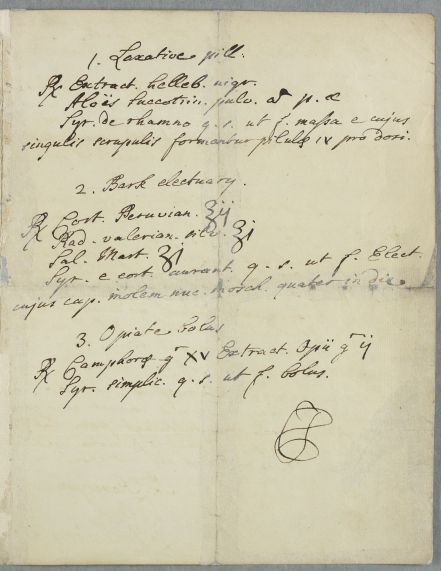 1. Laxative pill.
℞ Extract. helleb. nigr.
Aloës succotrin. pulv. a p. æ
Syr. de rhamno q. s. ut f. massa e cujus
singulis scrupulis formentur pilulæ iv pro dosi.
2. Bark electuary.
℞ Cort. Peruvian. ℥ij
Rad. valerian. silv. ℥j
Sal. Mart. ʒj
Syr. e cort. aurant. q. s. ut f. Elect.
cujus cap. molem nuc. mosch. quater in die.
3. Opiate bolus
℞ Camphoræ gr xv Extract. Opii gr ij
Syr. simplic. q. s. ut f. bolus.